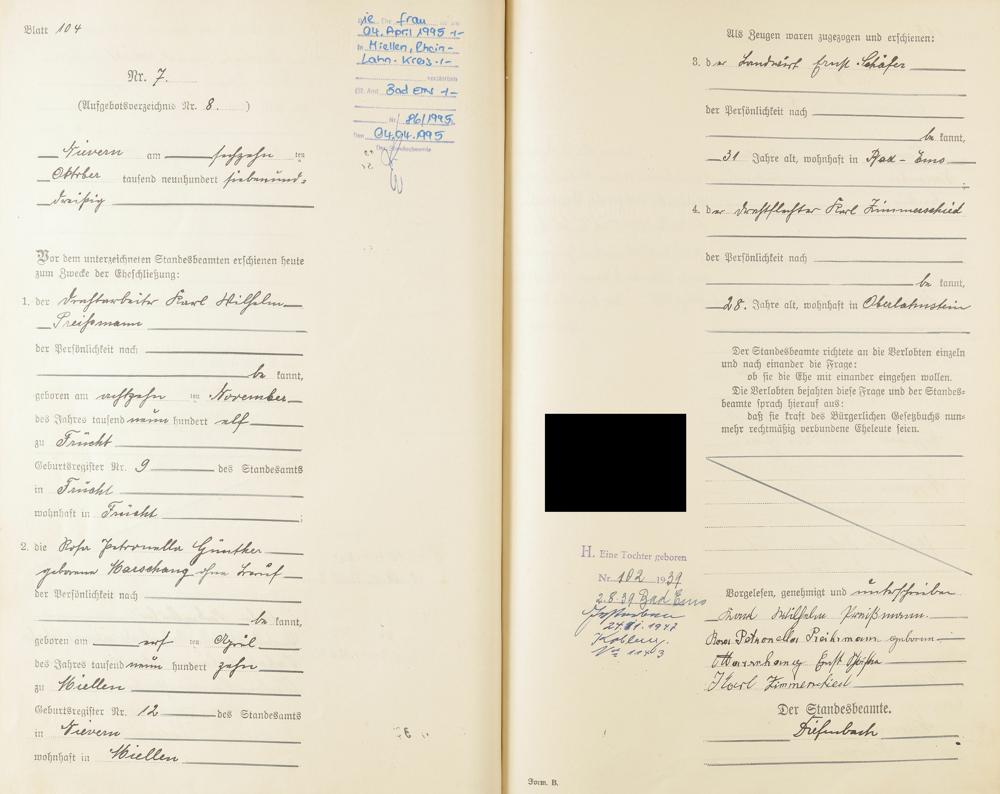 Blatt 104
Nr. 7.
(Aufgebotsverzeichnis Nr. 8. )
Nievern am sechzehn ten
Oktober tausend neunhundert siebenund-
dreißig
Vor dem unterzeichneten Standesbeamten erschienen heute
zum Zwecke der Eheschließung:
1. der Drahtarbeiter Karl Wilhelm
Preißmann
der Persönlichkeit nach
be kannt,
geboren am achtzehn ten November
des Jahres tausend neun hundert elf
zu Frücht
Geburtsregister Nr. 9 des Standesamts
in Frücht
wohnhaft in Frücht ;
2. die Rosa Petronella Günther
geborene Marschang ohne Beruf
der Persönlichkeit nach
be kannt,
geboren am ers ten April
des Jahres tausend neun hundert zehn
zu Miellen
Geburtsregister Nr. 12 des Standesamts
in Nievern
wohnhaft in Miellen
Die Frau
04. April 1995 -/-
in Miellen, Rhein-
Lahn-Kreis -/-
verstorben
(St. Amt Bad Ems -/-
Nr. 86/1995
Den 04.04.1995
Der Standesbeamte
Als Zeugen waren zugezogen und erschienen:
3. der Landwirt Ernst Schäfer
der Persönlichkeit nach
be kannt,
31 Jahre alt, wohnhaft in Bad-Ems
;
4. der Drahtflechter Karl Zimmerschied
der Persönlichkeit nach
be kannt,
28. Jahre alt, wohnhaft in Oberlahnstein
Der Standesbeamte richtete an die Verlobten einzeln
und nach einander die Frage:
ob sie die Ehe mit einander eingehen wollen.
Die Verlobten bejahten diese Frage und der Standes-
beamte sprach hierauf aus:
daß sie kraft des Bürgerlichen Gesetzbuchs nun-
mehr rechtmäßig verbundene Eheleute seien.
H. Eine Tochter geboren
Nr. 102 1939
2.8.39 Bad Ems
1947
Koblenz
Vorgelesen, genehmigt und unterschrieben
Karl Wilhelm Preißmann.
Rosa Petronella Preißmann geborene
Marschang Ernst Schäfer
Karl Zimmerschied
Der Standesbeamte.
Diefenbach
Form. B.